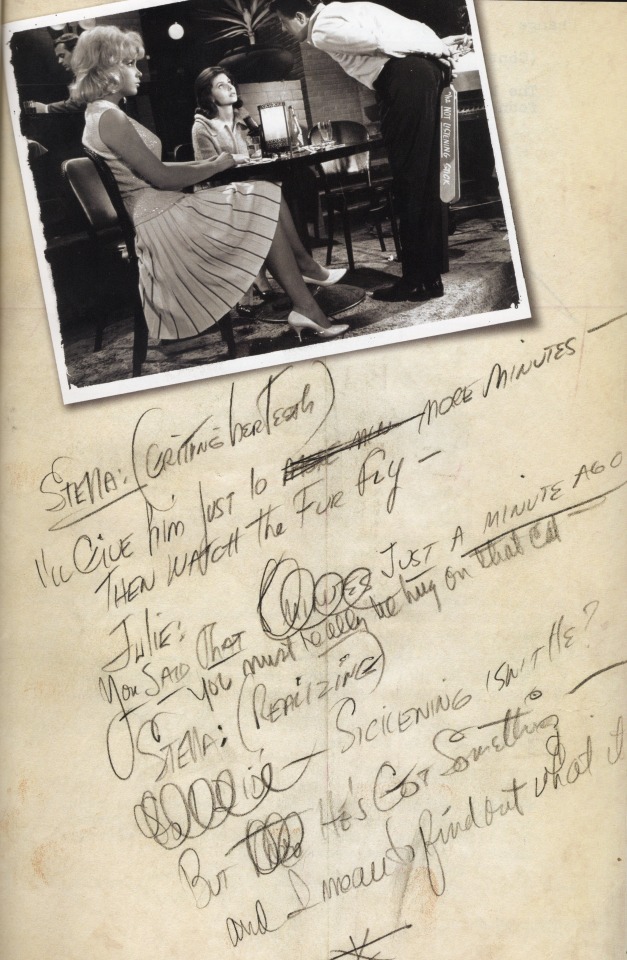 NOT DEFINING
Stella: (Gritting her teeth)
I'll give him just 10 more minutes —
Then watch the fur fly —
Julie:
You said that just a minute ago
— You must really be hung on that cat —
Stella: (Realizing)
Sickening isn't he?
But He's got something —
and I mean to find out what it